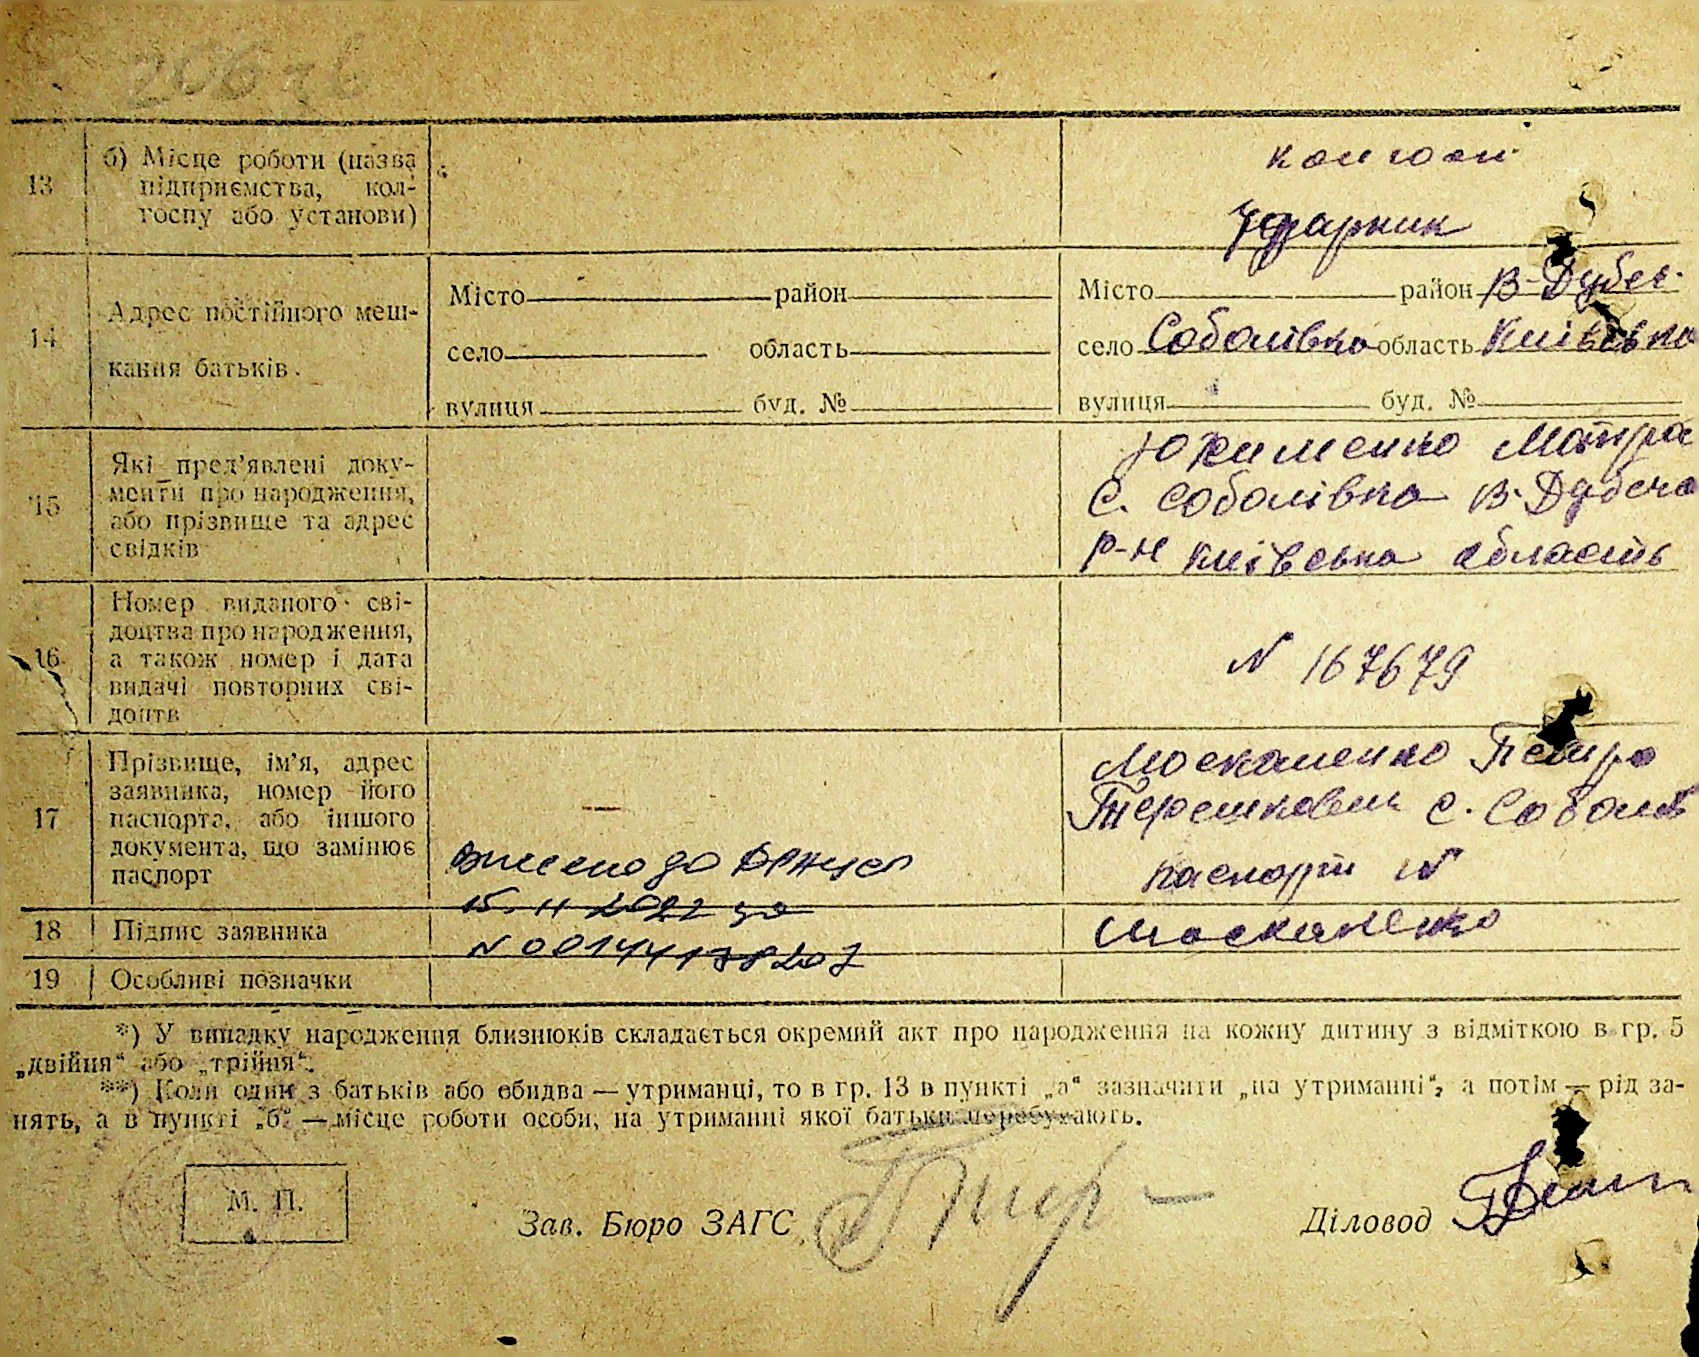 13 б) Місце роботи (назва
підприємства, кол-
госпу або установи)
колгосп
Ударник
14 Адрес постійного меш-
кання батьків.
Місто район
село область
вулиця буд. №
Місто район В-Дубеч.
село Соболівка область Київська
вулиця буд. №
15 Які пред'явлені доку-
менти про народження,
або прізвище та адрес
свідків
Юхименко Мотря
с. Соболівка В-Дубеча
р-н Київська область
16 Номер виданого сві-
доцтва про народження,
а також номер і дата
видачі повторних сві-
доцтв
N 167679
17 Прізвище, ім'я, адрес
заявника, номер його
паспорта, або іншого
документа, що замінює
паспорт
Внесено до ДРАЦСГ
15.11 2022 за
N 00144138207
Москаленко Петро
Терешкович с. Соболів
паспорт N
18 Підпис заявника
Москаленко
19 Особливі позначки
*) У випадку народження близнюків складається окремий акт про народження на кожну дитину з відміткою в гр. 5
„двійня“ або „трійня“.
**) Коли один з батьків або обидва — утриманці, то в гр. 13 в пункті „а“ зазначити „на утриманні“, а потім — рід за-
нять, а в пункті „б“ — місце роботи особи, на утриманні якої батьки перебувають.
М. П.
Зав. Бюро ЗАГС
Діловод